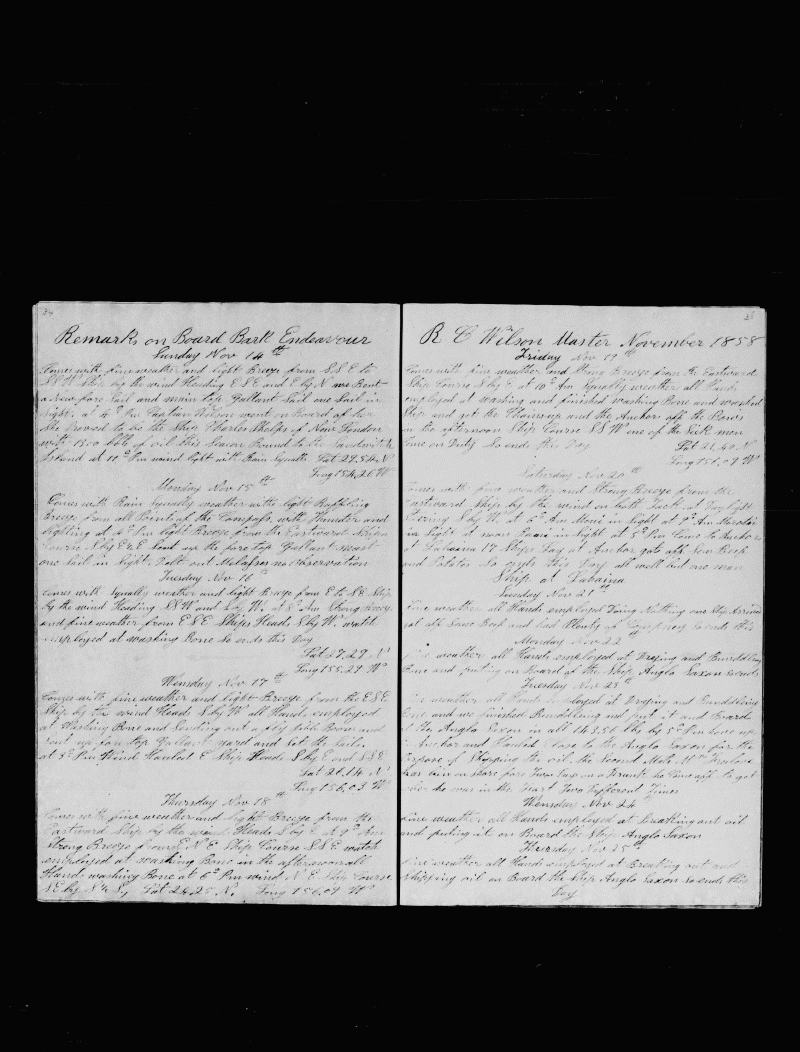 34
Remarks on Board Bark Endeavour
Sunday Nov 14th
Comes with fine weather and light Breeze from SSE to
SSW Ship by the wind Heading ESE and E by N we Bent
a New fore Sail and main top Gallant Sail one Sail in
Sight at 4 Pm Captain Wilson went on Board of her
She Proved to be the Ship Charles Phelps of New London
with 1300 bbls of oil this Season Bound to the Sandwich
Island at 11 Pm wind light with Rain Squalls Lat 29.54 N
Long 154.26 W
Monday Nov 15th
Comes with Rain Squally weather with light Baffling
Breeze from all Points of the Compass with Thunder and
Lighting at 4 Pm light Breeze from the Eastward Ships
Course S by E & E Sent up the fore top Gallant mast
one Sail in Sight no observation
Tuesday Nov 16th
Comes with Squally weather and light Breeze from E to SE Ship
by the wind Heading SSW and S by W at 8 Am Strong Breeze
and fine weather from ESE Ships Heads S by W watch
employed at washing Bone So ends this Day
Lat 27.29 N
Long 155.29 W
Wensday Nov 17th
Comes with fine weather and light Breeze from the ESE
Ship by the wind Heads S by W all Hands employed
at Washing Bone and Sending out a Boom and
Sent up fore top Gallant yard and Set the Sails
at 5 Pm Wind Hauled E Ship Heads S by E and SSE
Lat 26.14 N
Long 156.03 W
Thursday Nov 18th
Comes with fine weather and light Breeze from the
Eastward Ship by the wind Heads S by E at 9 Am
Strong Breeze from E N E Ship Course SSE watch
employed at washing Bone in the afternoon all
Hands washing Bone at 6 Pm wind N E Ship Course
Lat 24.25 N Long 156.09 W
R C Wilson Master November 1858
Friday Nov 19th
Comes with fine weather and Strong Breeze from the Eastward
Ship Course S by E at 10 Am Squally weather all Hands
employed at washing and finished washing Bone and washed
Ship and got the Chains up and the Anchors off the Bows
in the afternoon Ship Course SSW one of the Sick men
Came on Duty So ends this Day Lat 21.40 N
Long 156.09 W
Saturday Nov 20th
Comes with fine weather and Strong Breeze from the
Eastward Ship by the wind on both Tack at Day light
Steering S by W at 6 Am in Sight at 9 Am
in Sight at noon in Sight at 5 Pm Came to Anchor
at Lahaina 17 Ships Lay at Anchor got off New Beef
and Potatos So ends this Day all well but one man
Ship at Lahaina
Sunday Nov 21st
Fine weather all Hands employed Doing Nothing one Ship Arrived
got off Some Beef and had Plenty of Company So ends this
Monday Nov 22
fine weather all Hands employed at Drying and Bundling
Bone and putting on Board of the Ship Anglo Saxon So ends
Tuesday Nov 23th
fine weather all Hands employed at Drying and Bundling
Bone and we finished Bundling and Put it and Board
of the Anglo Saxon in all 14356 lbs by 5 Pm hove up
Anchor and Hauled Close to the Anglo Saxon for the
Purpose of Shipping the oil the Second Mate Mr
has bin on Shore for Two Days on a Drunk
he was in the Two Different Times
Wensday Nov 24
fine weather all Hands employed at Breaking out oil
and puting it on Board the Ship Anglo Saxon
Thursday Nov 25th
fine weather all Hands employed at Breaking out and
Shipping oil on Board the Ship Anglo Saxon So ends this
Day